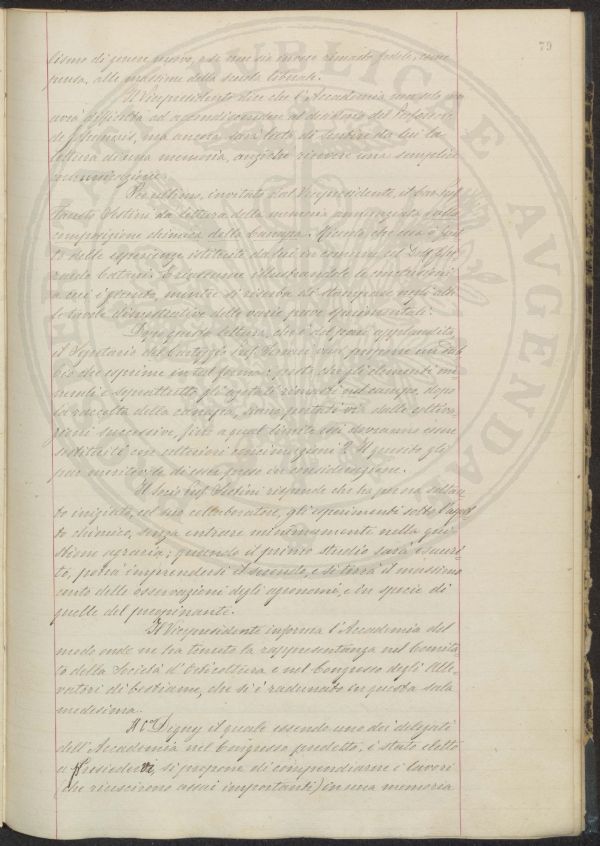 79
lismo di genere nuovo, e se non sia invece rimasto fedele, come
pensa, alle massime della scuola liberale.
Il Vicepresidente dice che l'Accademia non solo non
avrà difficoltà ad accondiscendere al desiderio del Professore
de Johannis, ma ancora sarà lieta di sentire da lui la
lettura di una memoria, anziché ricevere una semplice
comunicazione.
Per ultimo, invitato dal Vicepresidente, il Prof.
Fausto Sestini dà lettura della memoria annunziata sulla
composizione chimica della Canapa. Ricorda che essa è frut-
to delle esperienze istituite da lui in comune col Dott.
Catani. E riassume illustrandole le conclusioni
a cui è giunto, mentre si riserba di stampare negli atti
le tavole dimostrative delle varie prove sperimentali.
Dopo questa lettura, che è del pari applaudita,
il Segretario del Carteggio propone un dub-
bio che esprime in tal forma: posto che gli elementi mi-
nerali e soprattutto gli azotati rimasti nel campo, dopo
la raccolta della canapa, siano portati via dalle coltiva-
zioni successive, fino a qual limite essi dovranno esser
restituiti con ulteriori concimazioni? Il quesito gli
par meritevole di esser preso in considerazione.
Il Socio Prof. Sestini risponde che ha per ora soltan-
to iniziato, col suo collaboratore, gli esperimenti sotto l'aspet-
to chimico, senza entrare minimamente nella que-
stione agraria; quando il primo studio sarà esauri-
to, potrà imprendersi il secondo, e si terrà il massimo
conto delle osservazioni degli agronomi, e in specie di
quelle del preopinante.
Il Vicepresidente informa l'Accademia del
modo onde ne ha tenuto la rappresentanza nel Comita-
to della Società d'Orticoltura e nel Congresso degli Alle-
vatori di bestiame, che si è radunato in questa sala
medesima.
Il Cte Digny il quale essendo uno dei delegati
dell'Accademia nel Congresso predetto, è stato eletto
a Presiederlo, si propone di compendiarne i lavori
(che riuscirono assai importanti) in una memoria